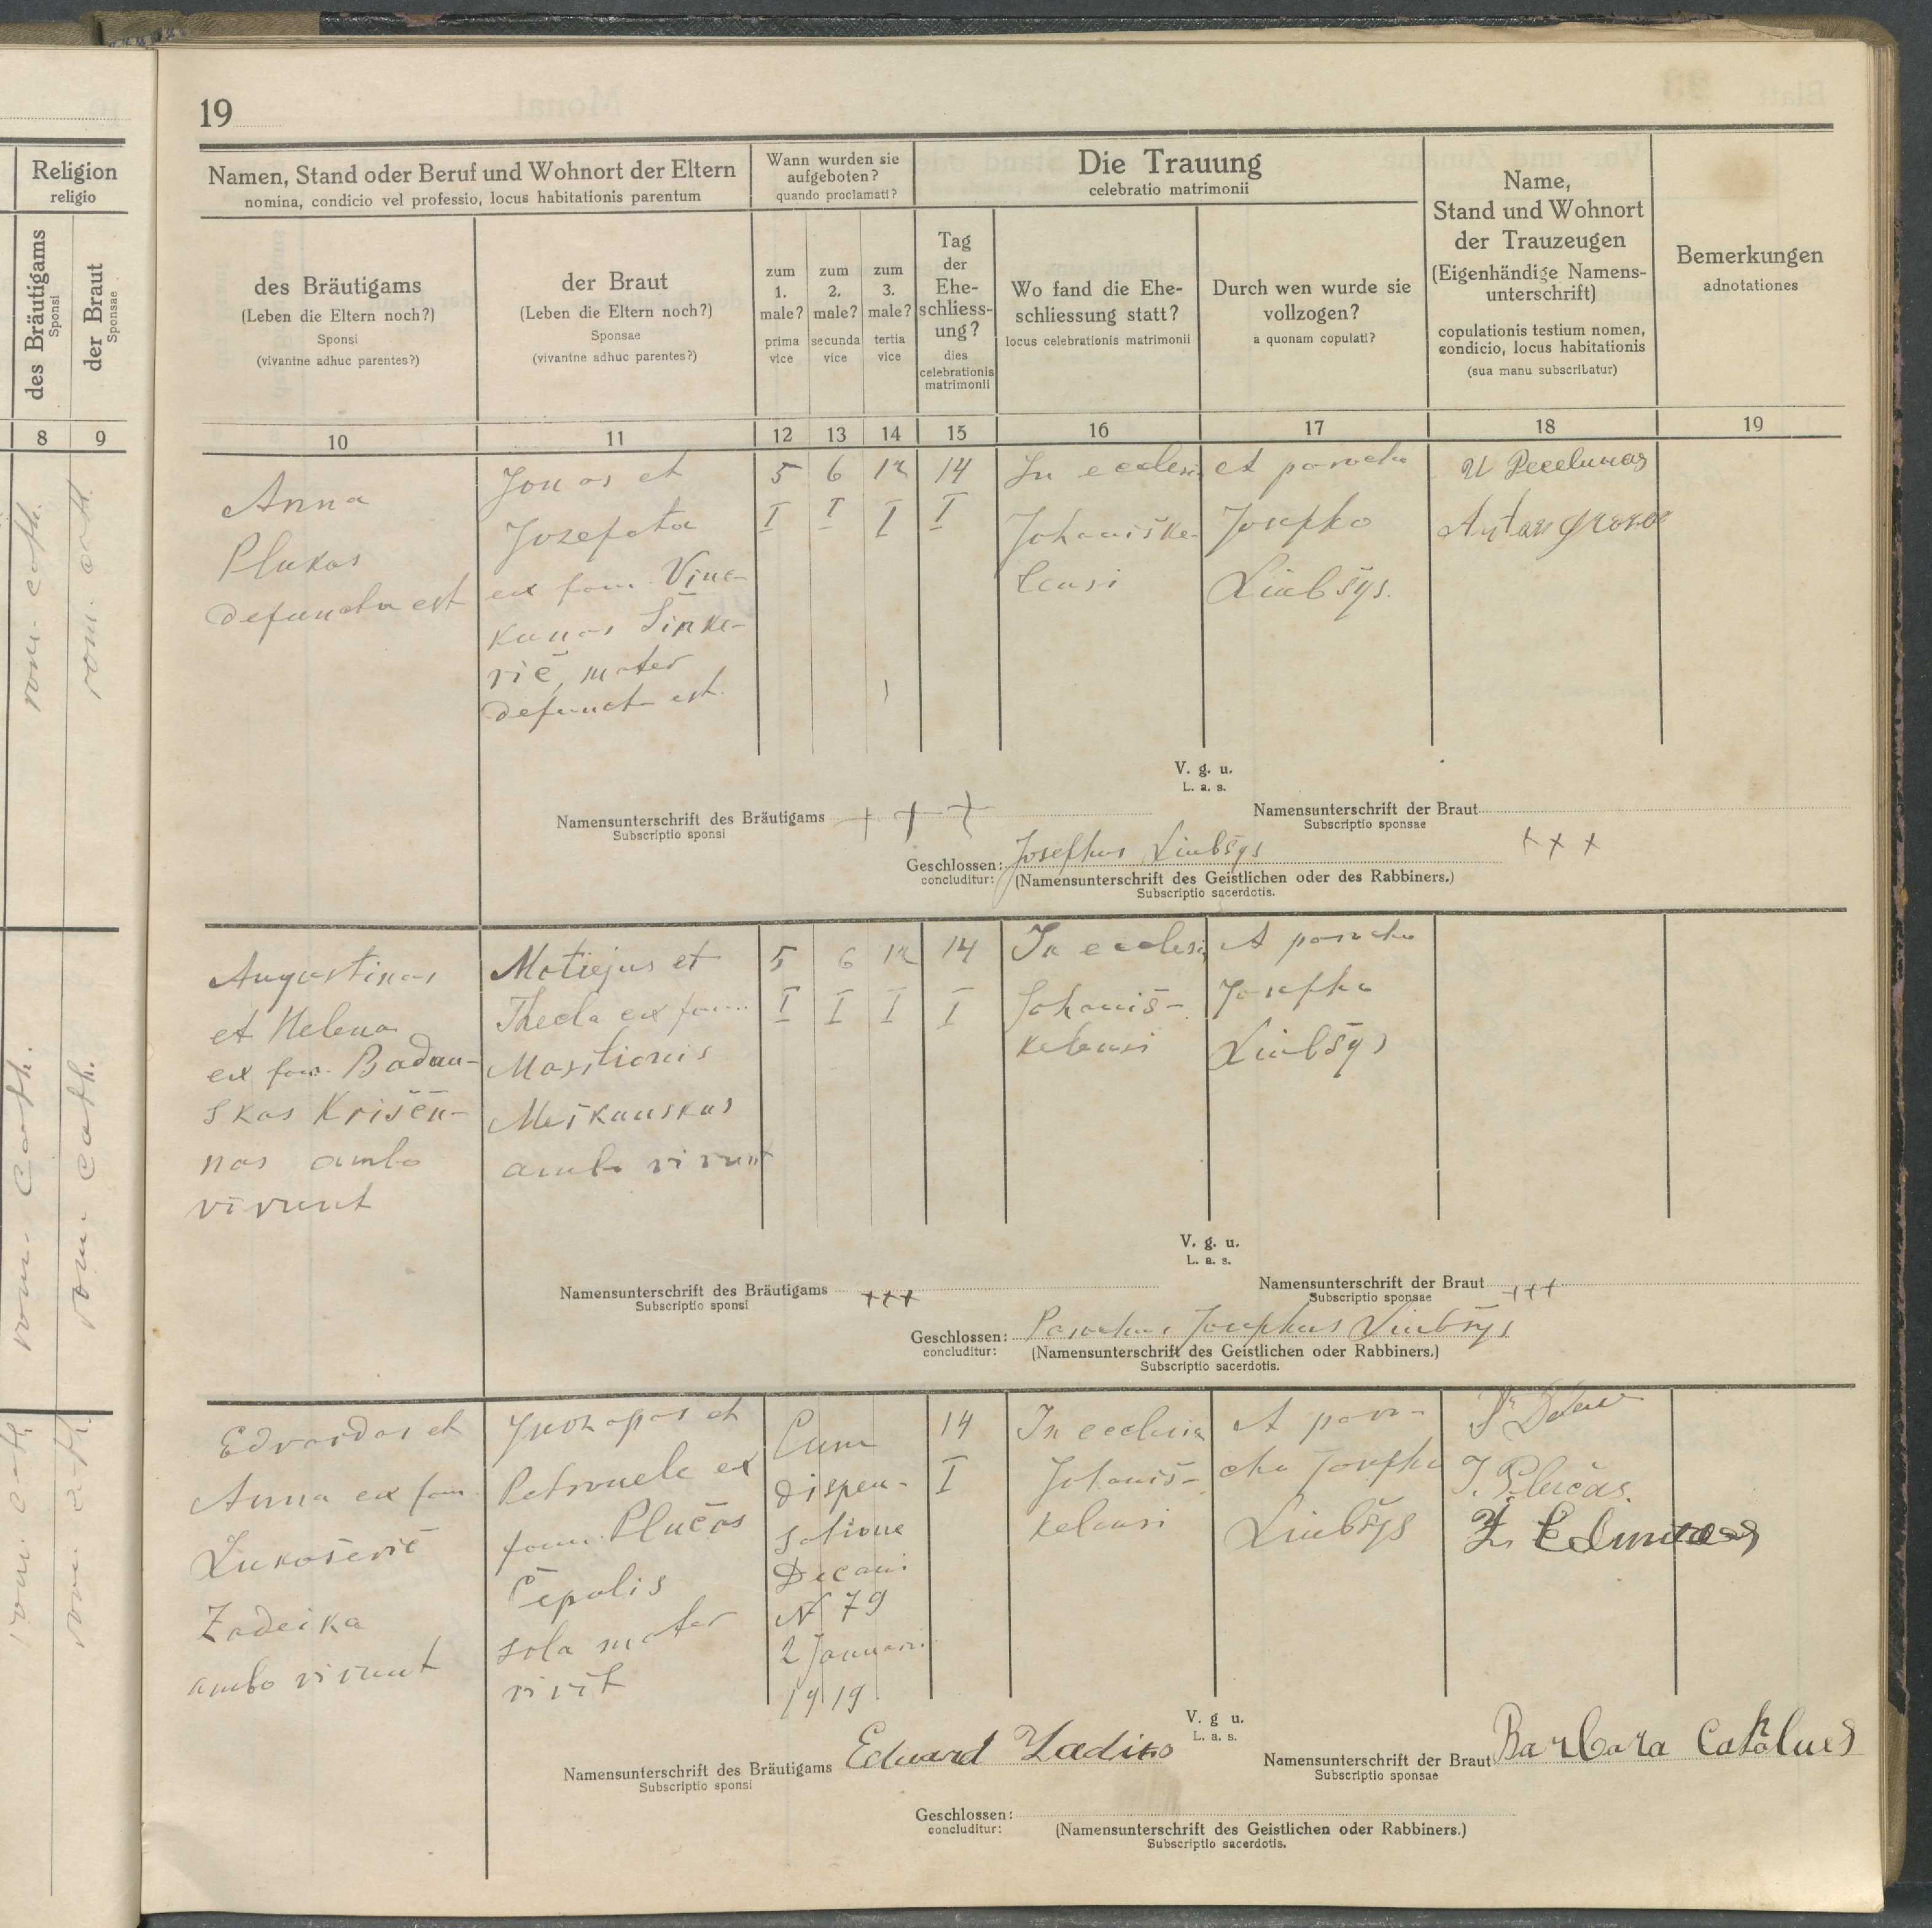 19
Religion
religio
des Bräutigams
Sponsi
der Braut
Sponsae
8
9
rom. cath.
rom. cath.
rom. Cath.
rom. cath.
rom. cath.
rom. cath.
Namen, Stand oder Beruf und Wohnort der Eltern
nomina, condicio vel professio, locus habitationis parentum
des Bräutigams
(Leben die Eltern noch?)
Sponsi
(vivantne adhuc parentes?)
der Braut
(Leben die Eltern noch?)
Sponsae
(vivantne adhuc parentes?)
Wann wurden sie
aufgeboten?
quando proclamati?
zum
1.
male?
prima
vice
zum
2.
male?
secunda
vice
zum
3.
male?
tertia
vice
Die Trauung
celebratio matrimonii
Tag
der
Ehe-
schliess-
ung?
dies
celebrationis
matrimonii
Wo fand die Ehe-
schliessung statt?
locus celebrationis matrimonii
Durch wen wurde sie
vollzogen?
a quonam copulati?
Name,
Stand und Wohnort
der Trauzeugen
(Eigenhändige Namens-
unterschrift)
copulationis testium nomen,
condicio, locus habitationis
(sua manu subscribatur)
Bemerkungen
adnotationes
10 11 12 13 14 15 16 17 18 19
Anna
Plukas
defuncta est
Jonas et
Jozefata
ex fam. Vine-
kunas Sinke-
rič, mater
defuncta est.
5 6 12 14
I I I I
In ecclesia
Johaniške-
lensi
A parocho
Josepho
Liubšys.
V. g. u.
L. a. s.
Namensunterschrift des Bräutigams + + +
Subscriptio sponsi
Namensunterschrift der Braut
Subscriptio sponsae
+ + +
Geschlossen: Josephus Liubšys
concluditur: (Namensunterschrift des Geistlichen oder des Rabbiners.)
Subscriptio sacerdotis.
Augustinas
et Helena
ex fam. Badau-
skas Krišēn-
nas ambo
vivunt
Motiejus et
Thecla ex fam.
Masilionis
Meškauskas
ambo vivunt
5 6 12 14
I I I I
In ecclesia
Johaniš-
kelensi
A parocho
Josepho
Liubšys
V. g. u.
L. a. s.
Namensunterschrift des Bräutigams +++
Subscriptio sponsi
Namensunterschrift der Braut +++
Subscriptio sponsae
Geschlossen: Parochus Josephus Liubšys
concluditur: (Namensunterschrift des Geistlichen oder Rabbiners.)
Subscriptio sacerdotis.
Edvardas et
Anna ex fam.
Lukošerič
Zadeika
ambo vivunt
Juozapas et
Petronele ex
fam. Plučas
Čepolis
sola mater
vivit
Cum
dispen-
satione
Decani
N 79
2 Januarii
1919
14
I
In ecclesia
Johaniš-
kelensi
A paro-
cho Josepho
Liubšys
J. Plučas.
V. g u.
L. a. s.
Namensunterschrift des Bräutigams Eduard
Subscriptio sponsi
Namensunterschrift der Braut Barbara
Subscriptio sponsae
Geschlossen:
concluditur: (Namensunterschrift des Geistlichen oder Rabbiners.)
Subscriptio sacerdotis.